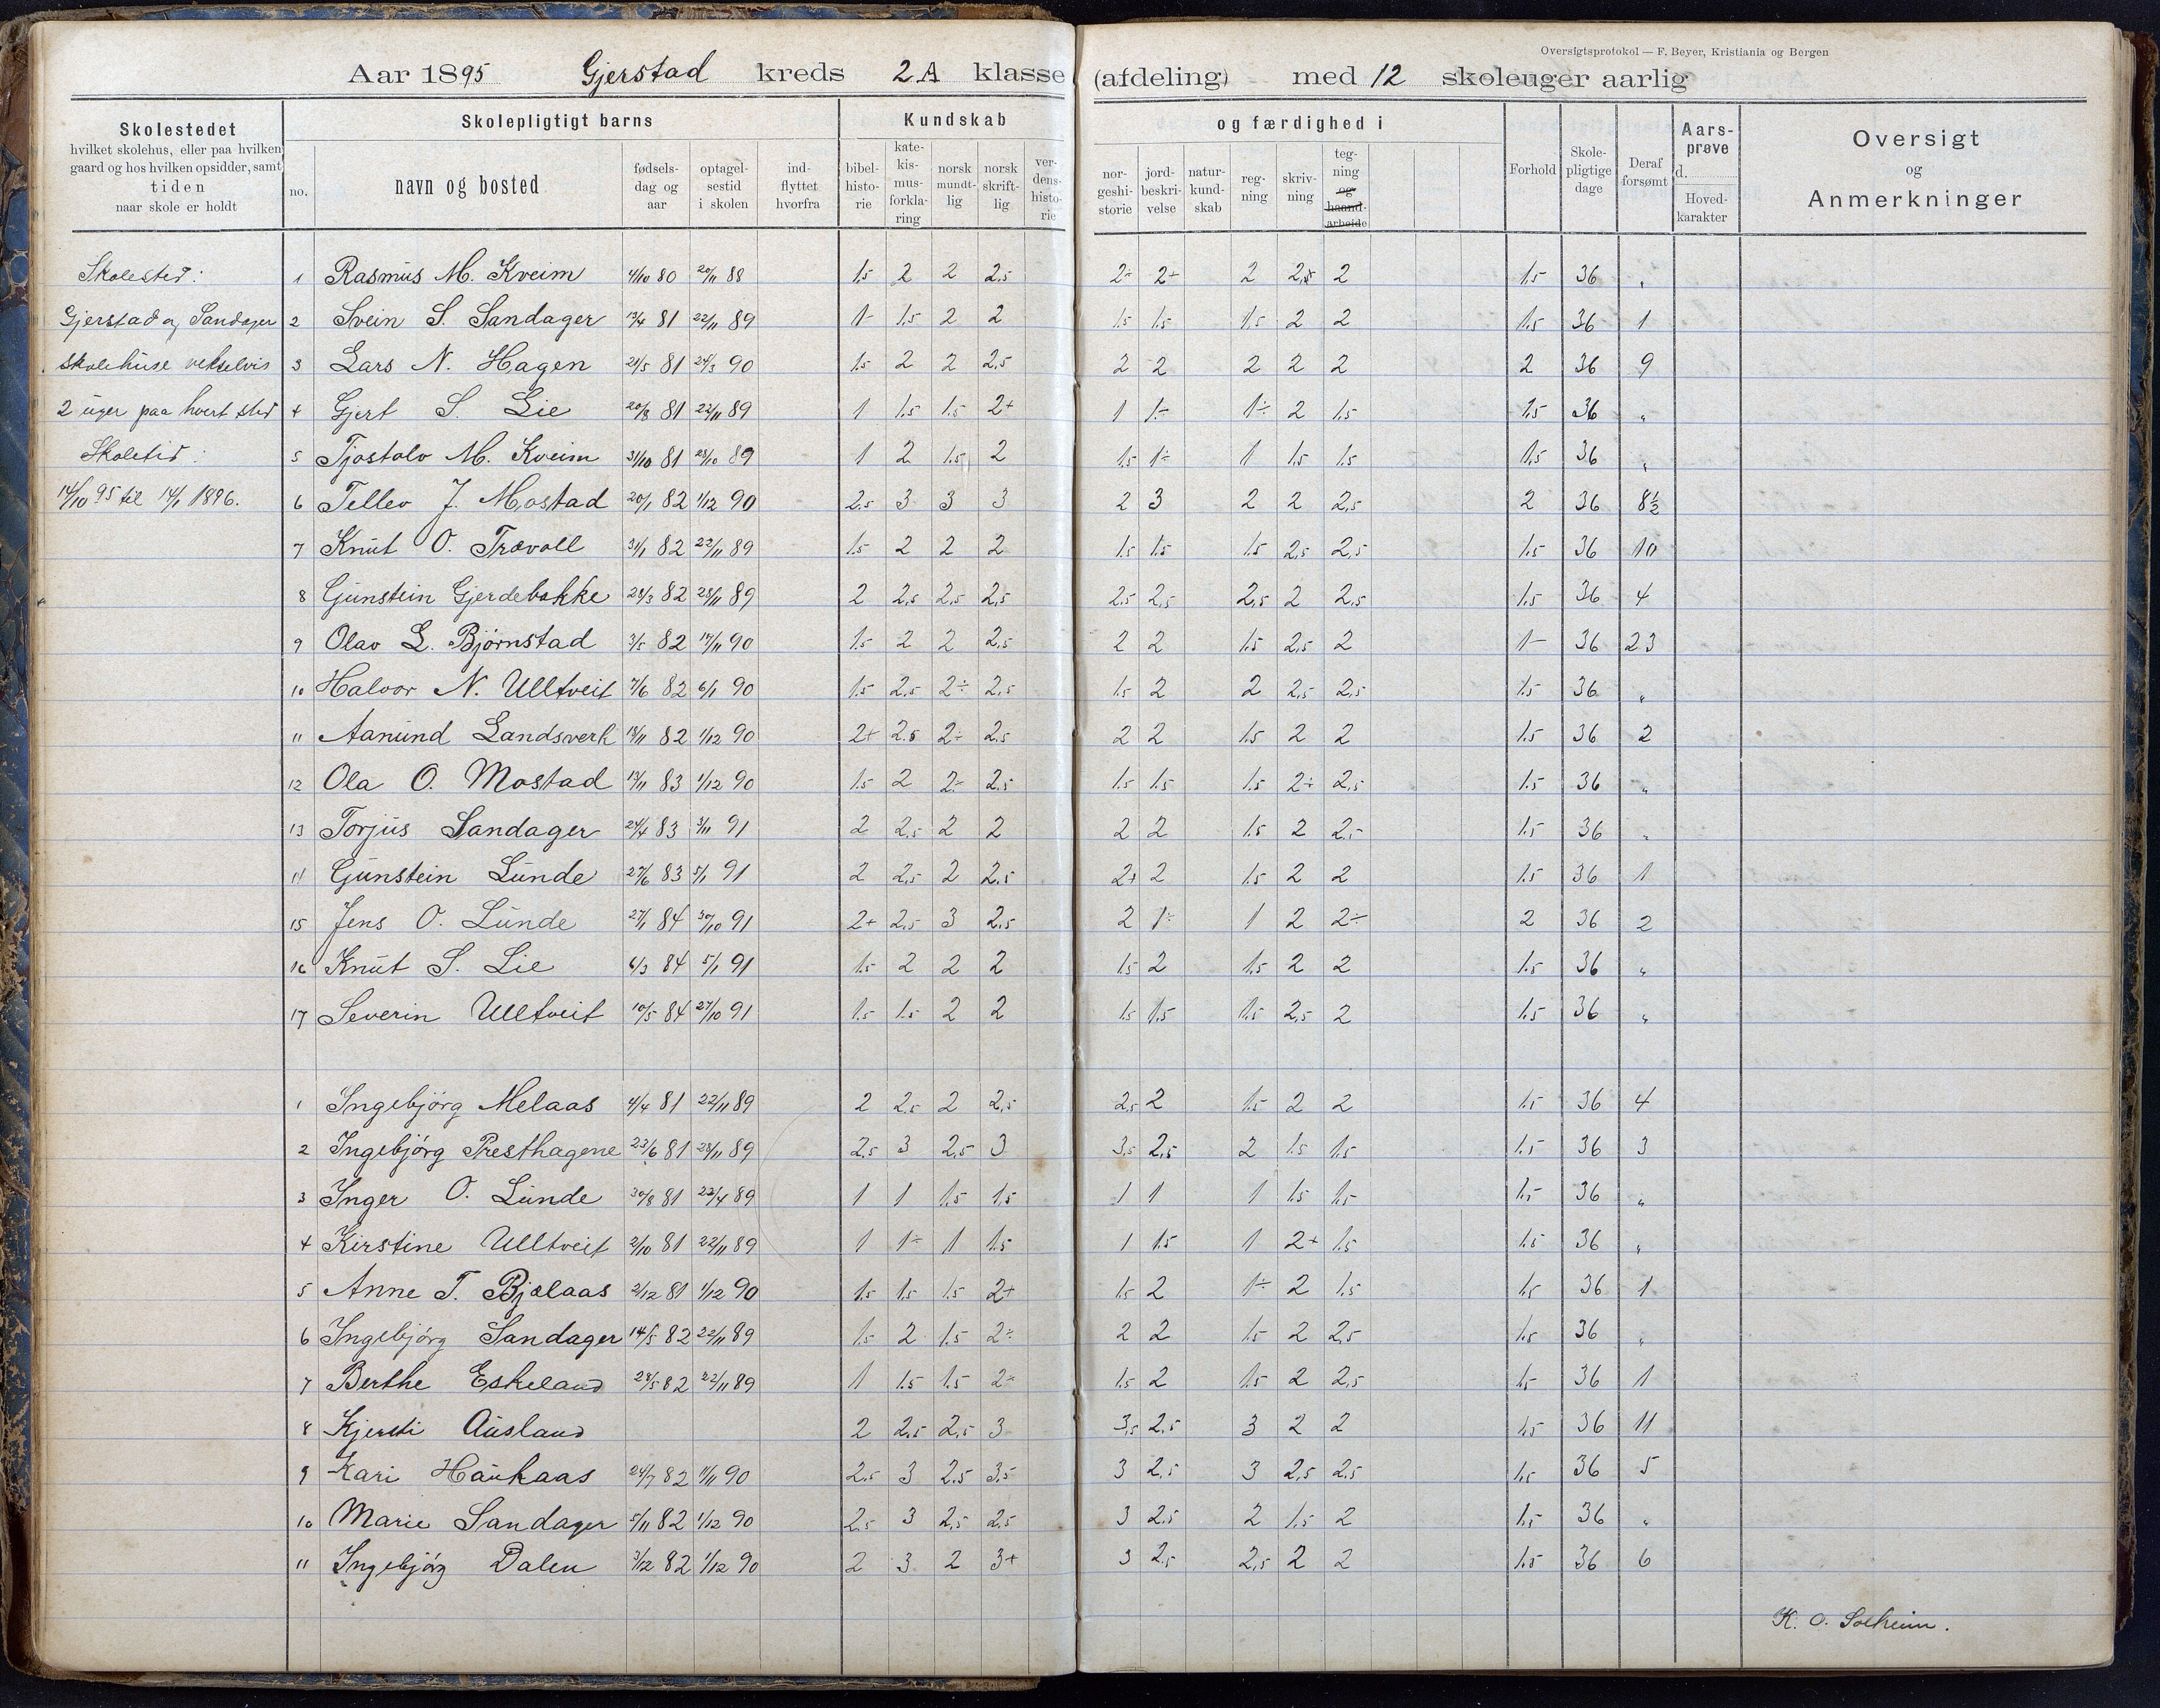 Oversigtsprotokol — F. Beyer, Kristiania og Bergen
Aar 1895 Gjerstad kreds 2 A klasse (afdeling) med 12 skoleuger aarlig
Skolestedet
hvilket skolehus, eller paa hvilken
gaard og hos hvilken opsidder, samt
tiden
naar skole er holdt
Skolepligtigt barns
no.
navn og bosted
fødsels-
dag og
aar
optagel-
sestid
i skolen
ind-
flyttet
hvorfra
Kundskab
bibel-
histo-
rie
kate-
kis-
mus-
forkla-
ring
norsk
mundt-
lig
norsk
skrift-
lig
ver-
dens-
histo-
rie
og færdighed i
nor-
geshi-
storie
jord-
beskri-
velse
natur-
kund-
skab
reg-
ning
skriv-
ning
teg-
ning
og
haand-
arbeide
Forhold
Skole-
pligtige
dage
Deraf
forsømt
Aars-
prøve
d.
Hoved-
karakter
Oversigt
og
Anmerkninger
Skolested:
Gjerstad og Sandager
skolehuse vekselvis
2 uger paa hvert sted
Skoletid:
14/10 95 til 14/1 1896.
1 Rasmus M. Kveim 4/10 80 20/11 88 1.5 2 2 2.5 2÷ 2+ 2 2.5 2 1.5 36 "
2 Svein S. Sandager 13/4 81 22/11 89 1- 1.5 2 2 1.5 1.5 1.5 2 2 1.5 36 1
3 Lars N. Hagen 21/5 81 24/3 90 1.5 2 2 2.5 2 2 2 2 2 2 36 9
4 Gjert S. Lie 20/8 81 22/11 89 1 1.5 1.5 2+ 1 1÷ 1÷ 2 1.5 1.5 36 "
5 Tjostolv M. Kveim 31/10 81 23/10 89 1 2 1.5 2 1.5 1÷ 1 1.5 1.5 1.5 36 "
6 Tellev J. Mostad 20/1 82 1/12 90 2.5 3 3 3 2 3 2 2 2.5 2 36 8½
7 Knut O. Trævoll 31/1 82 22/11 89 1.5 2 2 2 1.5 1.5 1.5 2.5 2.5 1.5 36 10
8 Gunstein Gjerdebakke 28/3 82 28/11 89 2 2.5 2.5 2.5 2.5 2.5 2.5 2 2.5 1.5 36 4
9 Olav L. Bjørnstad 3/5 82 17/11 90 1.5 2 2 2.5 2 2 1.5 2.5 2 1- 36 23
10 Halvor N. Ulltveit 7/6 82 6/1 90 1.5 2.5 2÷ 2.5 1.5 2 2 2.5 2.5 1.5 36 "
11 Aanund Landsverk 18/11 82 1/12 90 2+ 2.5 2÷ 2.5 2 2 1.5 2 2 1.5 36 2
12 Ola O. Mostad 13/11 83 1/12 90 1.5 2 2÷ 2.5 1.5 1.5 1.5 2÷ 2.5 1.5 36 "
13 Torjus Sandager 24/4 83 3/11 91 2 2.5 2 2 2 2 1.5 2 2.5 1.5 36 "
14 Gunstein Lunde 27/6 83 5/1 91 2 2.5 2 2.5 2+ 2 1.5 2 2 1.5 36 1
15 Jens O. Lunde 27/1 84 30/10 91 2+ 2.5 3 2.5 2 1÷ 1 2 2÷ 2 36 2
16 Knut S. Lie 6/3 84 5/1 91 1.5 2 2 2 1.5 2 1.5 2 2 1.5 36 "
17 Severin Ulltveit 10/5 84 27/10 91 1.5 1.5 2 2 1.5 1.5 1.5 2.5 2 1.5 36 "
1 Ingebjörg Melaas 4/4 81 22/11 89 2 2.5 2 2.5 2.5 2 1.5 2 2 1.5 36 4
2 Ingebjörg Presthagene 23/6 81 28/11 89 2.5 3 2.5 3 3.5 2.5 2 1.5 1.5 1.5 36 3
3 Inger O. Lunde 30/8 81 22/4 89 1 1 1.5 1.5 1 1 1 1.5 1.5 1.5 36 "
4 Kirstine Ulltveit 2/10 81 22/11 89 1 1÷ 1 1.5 1 1.5 1 2+ 1.5 1.5 36 "
5 Anne T. Bjelaas 2/12 81 1/12 90 1.5 1.5 1.5 2+ 1.5 2 1÷ 2 1.5 1.5 36 1
6 Ingebjörg Sandager 14/5 82 22/11 89 1.5 2 1.5 2÷ 2 2 1.5 2 2.5 1.5 36 "
7 Berthe Eskeland 28/5 82 22/11 89 1 1.5 1.5 2÷ 1.5 2 1.5 2 2.5 1.5 36 1
8 Kjersti Ausland 2 2.5 2.5 3 3.5 2.5 3 2 2 1.5 36 11
9 Kari Haukaas 24/7 82 11/11 90 2.5 3 2.5 3.5 3 2.5 3 2.5 2.5 1.5 36 5
10 Marie Sandager 5/11 82 1/12 90 2.5 3 2.5 2.5 3 2.5 2 1.5 2 1.5 36 "
11 Ingebjörg Dalen 3/12 82 1/12 90 2 3 2 3+ 3 2.5 2.5 2 2 1.5 36 6
K. O. Solheim.